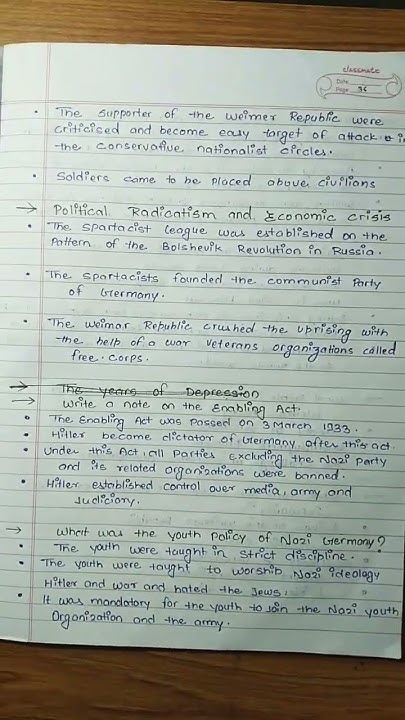 classmate
Date
Page 36
• The supporter of the Weimer Republic were
criticised and become easy target of attack in
the conservative nationalist circles.
• Soldiers came to be placed above civilians
→ Political Radicatism and Economic crisis
• The Spartacist League was established on the
Pattern of the Bolshevik Revolution in Russia.
• The Spartacists founded the communist Party
of Germany.
• The Weimar Republic crushed the uprising with
the help of a war veterans organizations called
free. corps.
→ The years of Depression
→ Write a note on the Enabling Act.
• The Enabling Act was passed on 3 March 1933.
• Hitler became dictator of Germany after this act.
• Under this Act, all Parties Excluding the Nazi Party
and its related organizations were banned.
• Hitler established control over media, army and
Judiciory.
→ What was the youth Policy of Nazi Germany?
• The youth were taught in strict discipline.
• The youth were taught to worship Nazi ideology
Hitler and war and hated the Jews.
• It was mandatory for the youth to join the Nazi youth
Organization and the army.